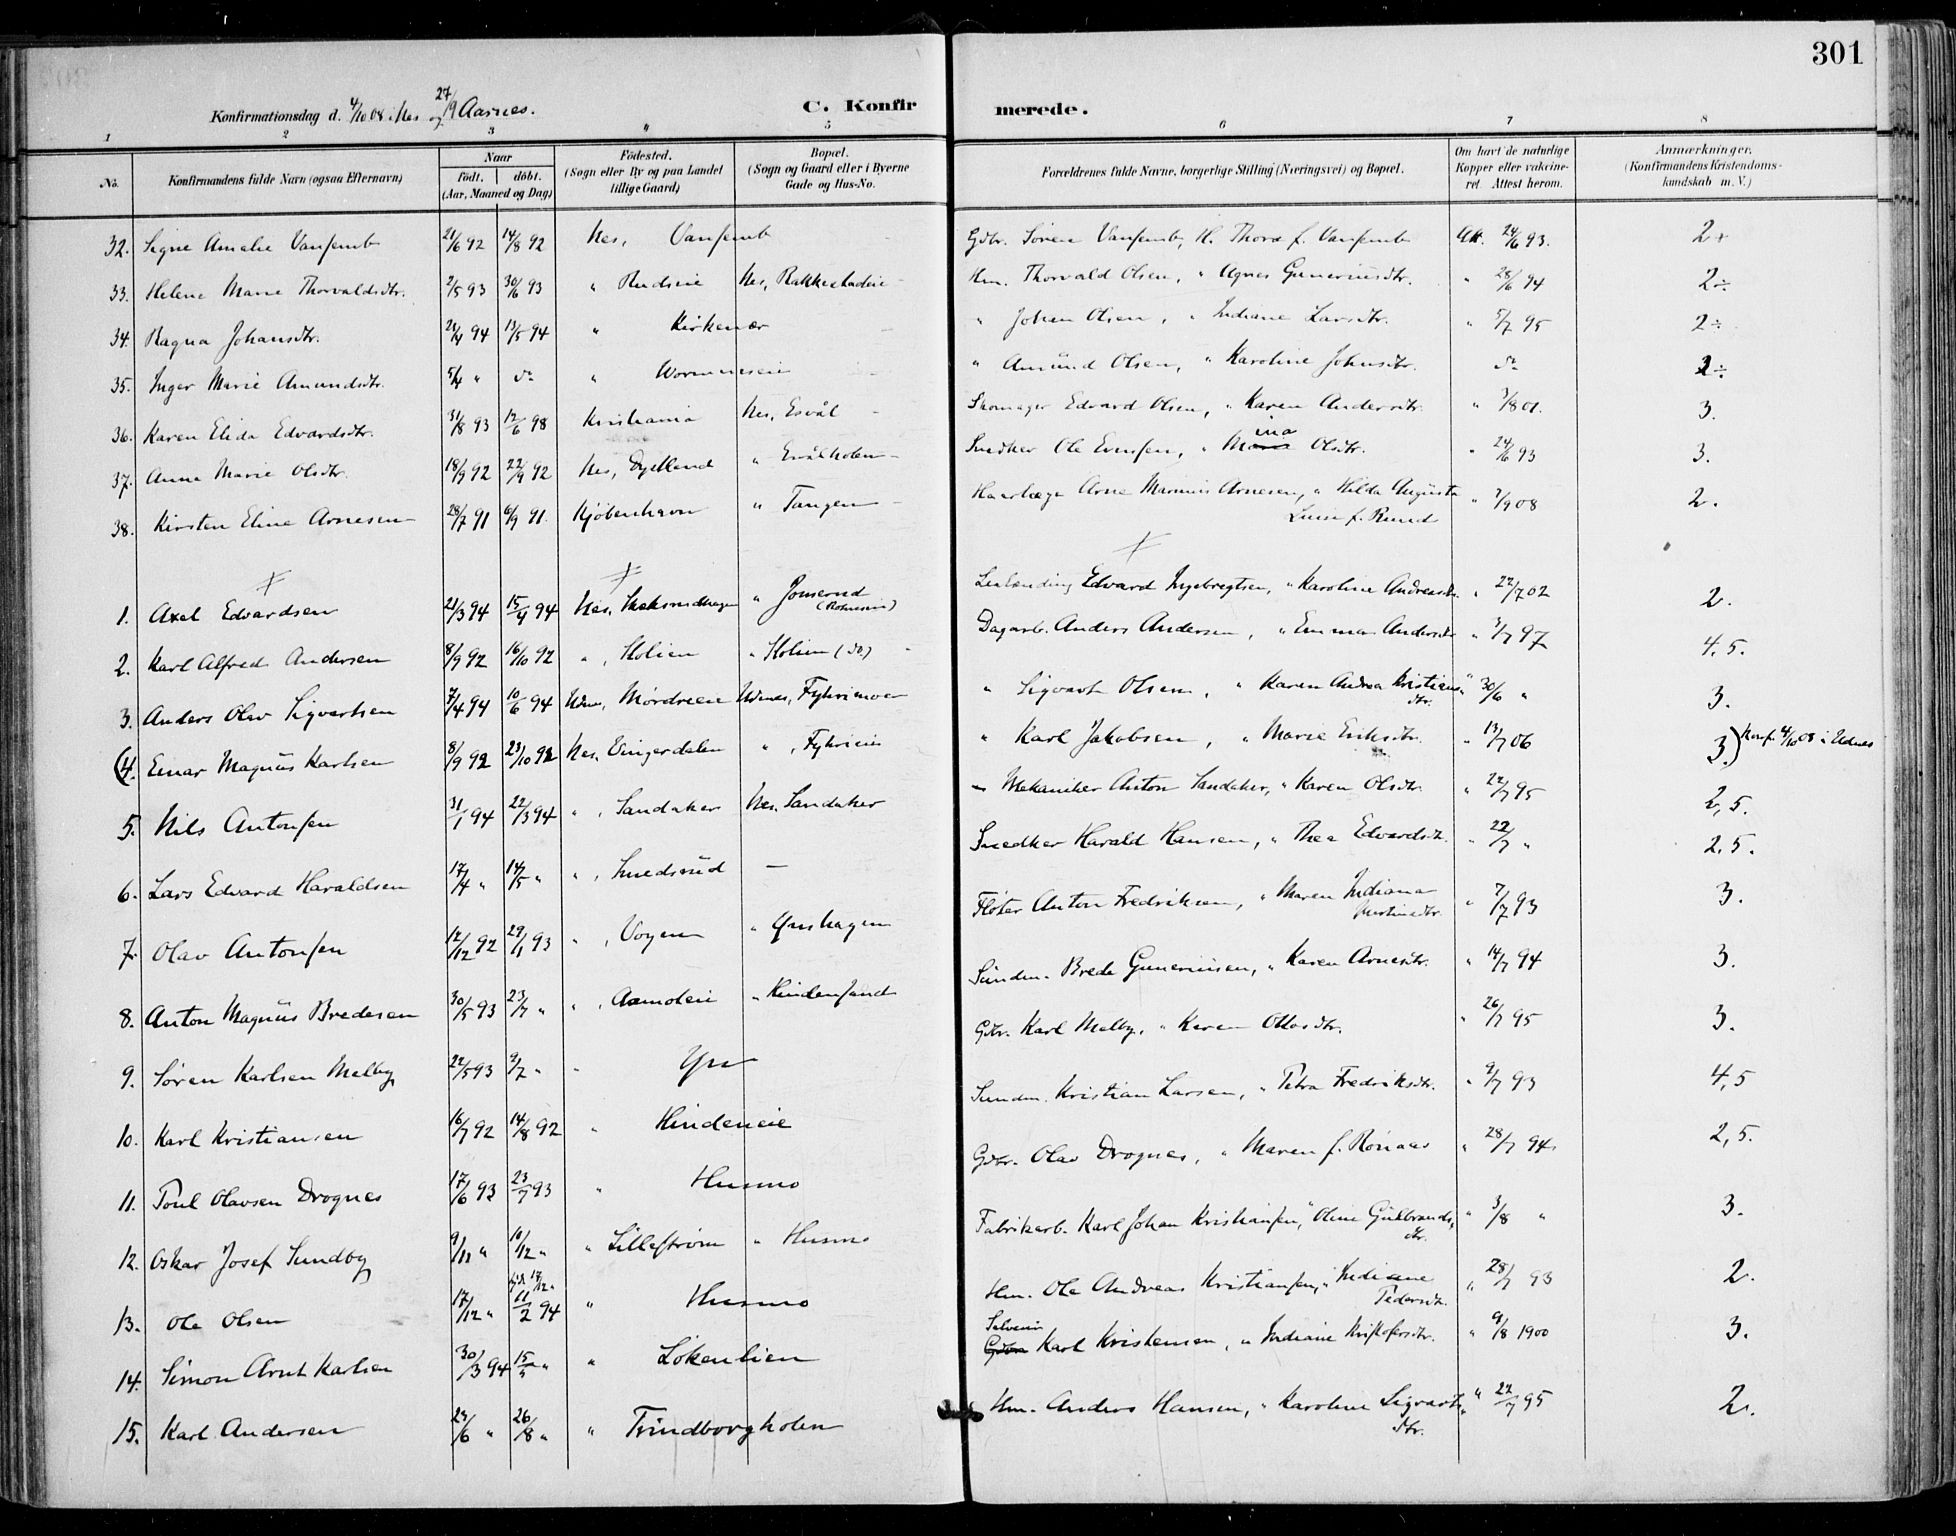 301
Konfirmationsdag d. 4/10 08 i Nes og 27/9 Aarnes.
C. Konfirmerede.
1 2 3 " 5 6 7 8
No. Konfirmandens fulde Navn (ogsaa Efternavn) Naar födt. döbt. (Aar, Maaned og Dag) Födested. (Sogn eller By og paa Landet tillige Gaard) Bopæl. (Sogn og Gaard eller i Byerne Gade og Hus-No. Forældrenes fulde Navne, borgerlige Stilling (Næringsvei) og Bopæl. Om havt de naturlige Kopper eller vakcineret. Attest herom. Anmærkninger. (Konfirmandens Kristendomskundskab m. V.)
32. Signe Amalie Vansemb 21/6 92 14/8 92 Nes, Vansemb Gdbr. Søren Vansemb, H. Thora f. Vansemb Att. 24/6 93. 2+
33. Helene Marie Thorvaldsdtr. 2/5 93 30/6 93 " Rudseie Nes, Rakkestadeie Hm. Thorvald Olsen, " Agnes Guneriusdtr. " 28/6 94 2÷
34. Ragna Johansdtr. 21/4 94 13/5 94 " Kirkenær " Johan Olsen, " Indiane Larsdtr. " 5/7 95 2÷
35. Inger Marie Amundsdtr. 5/4 " do " Wormneseie " Amund Olsen, " Karoline Johnsdtr. do 2÷
36. Karen Elida Edvardsdtr. 31/8 93 12/6 98 Kristiania Nes, Esvål Skomager Edvard Olsen, " Karen Andersdtr. " 3/8 01. 3.
37. Anna Marie Olsdtr. 18/9 92 22/9 92 Nes, Dyttland " Esvålholen Snedker Ole Evensen, " Marie ina Olsdtr. " 24/6 93 3.
38. Kirsten Eline Arnesen 28/7 91 6/9 91. Kjöbenhavn " Tangen Haarlæge Arne Marinius Arnesen, " Hilda Augusta Luise f. Rund " 7/9 08 2.
1. Axel Edvardsen 21/3 94 15/4 94 Nes, " Leilending Edvard Ingebregtsen, " Karoline Andreasdtr. " 22/7 02 2.
2. Karl Alfred Andersen 8/9 92 16/10 92 ", Holien " Holien (do) Dagarb. Anders Andersen, " Emma Andersdtr " 3/7 97 4,5.
3. Anders Olav Sigvartsen 7/4 94 10/6 94 Udnes, Mordreeie Udnes, Fyhrimoen " Sigvart Olsen, " Karen Andrea Kristiansdtr. " 30/6 " 3.
(4. Einar Magnus Karlsen 8/9 92 23/10 92 Nes, Eingerdalen ", Fyhrieie " Karl Jakobsen, " Marie Eriksdtr. " 13/7 06 3.) Konf. 4/10 08 i Udnes
5. Nils Antonsen 31/1 94 22/3 94 ", Sandaker Nes, Sandaker Mekaniker Anton Sandaker, " Karen Olsdtr. " 22/7 95 2,5.
6. Lars Edvard Haraldsen 17/4 " 14/5 " ", Smedsrud — Snedker Harald Hansen, " Thea Edvardsdtr. " 22/7 " 2,5.
7. Olav Antonsen 12/12 92 29/1 93 ", Voyen " Fløter Anton Fredriksen, " Maren Indiana " 7/7 93 3.
8. Anton Magnus Bredesen 30/5 93 23/7 " ", Aamoteie " Hindensand Sundm. Brede Gunerinsen, " Karen Arnesdtr. " 14/7 94 3.
9. Søren Karlsen Melby 22/5 93 2/7 " " Gdbr. Karl Melby, " Karen Ottosdtr. " 26/7 95 3.
10. Karl Kristiansen 16/7 92 14/8 92 " Hindeneie Sundm. Kristian Larsen, " Petra Fredriksdtr. " 9/7 93 4,5
11. Poul Olavsen Drognes 17/6 93 23/7 93 " Husmo Gdbr. Olav Drognes, " Maren f. Rönaas " 28/7 94 2,5.
12. Oskar Josef Sundby 9/11 " 10/12 " " Lillestrøm " Husmo Fabrikarb. Karl Johan Kristiansen, " Oline Gulbrandsdtr. " 3/8 " 3.
13. Ole Olsen 17/12 " 17/12 " 11/2 94 " Husmo Hm. Ole Andreas Kristiansen, " Indiane Pedersdtr. " 28/7 93 2.
14. Simon Arnt Karlsen 30/3 94 15/5 " " Løkenlien Selveier Gdbr. Karl Kristensen, " Indiane Kristofersdtr. " 9/8 1900 3.
15. Karl Andersen 24/6 " 26/8 " " Trindborgholen Hm. Anders Hansen, " Karoline Sigvartsdtr. " 22/7 95 2.